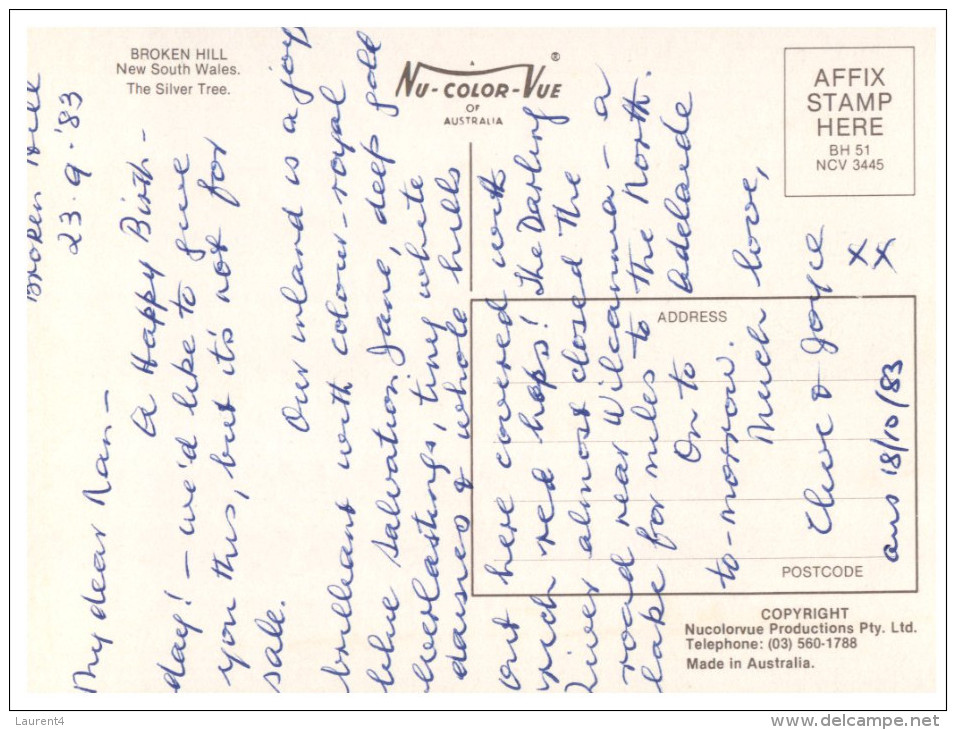 BROKEN HILL
New South Wales.
The Silver Tree.
NU-COLOR-VUE ®
OF
AUSTRALIA
AFFIX
STAMP
HERE
BH 51
NCV 3445
ADDRESS
POSTCODE
COPYRIGHT
Nucolorvue Productions Pty. Ltd.
Telephone: (03) 560-1788
Made in Australia.
Broken Hill
23.9.'83
My dear Nan —
A Happy Birth-
day! — we'd like to give
you this, but it's not for
sale.
Our inland is a joy
brilliant with colour - royal
blue salvation Jane, deep gold
everlastings, tiny white
daisies & whole hills
out here covered with
rich red hops! The Darling
River almost closed the
road near Wilcannia - a
lake for miles to the North.
On to Adelaide
to-morrow.
Much love,
Clive & Joyce
x x
ans 18/10/83
Laurent4
www.delcampe.net